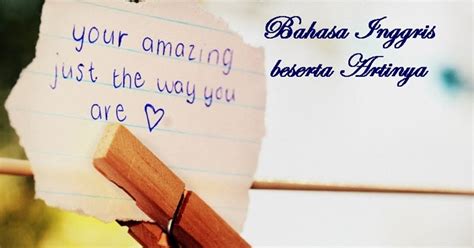 your amazing
just the way you
are ♡
Bahasa Inggris
beserta Artinya